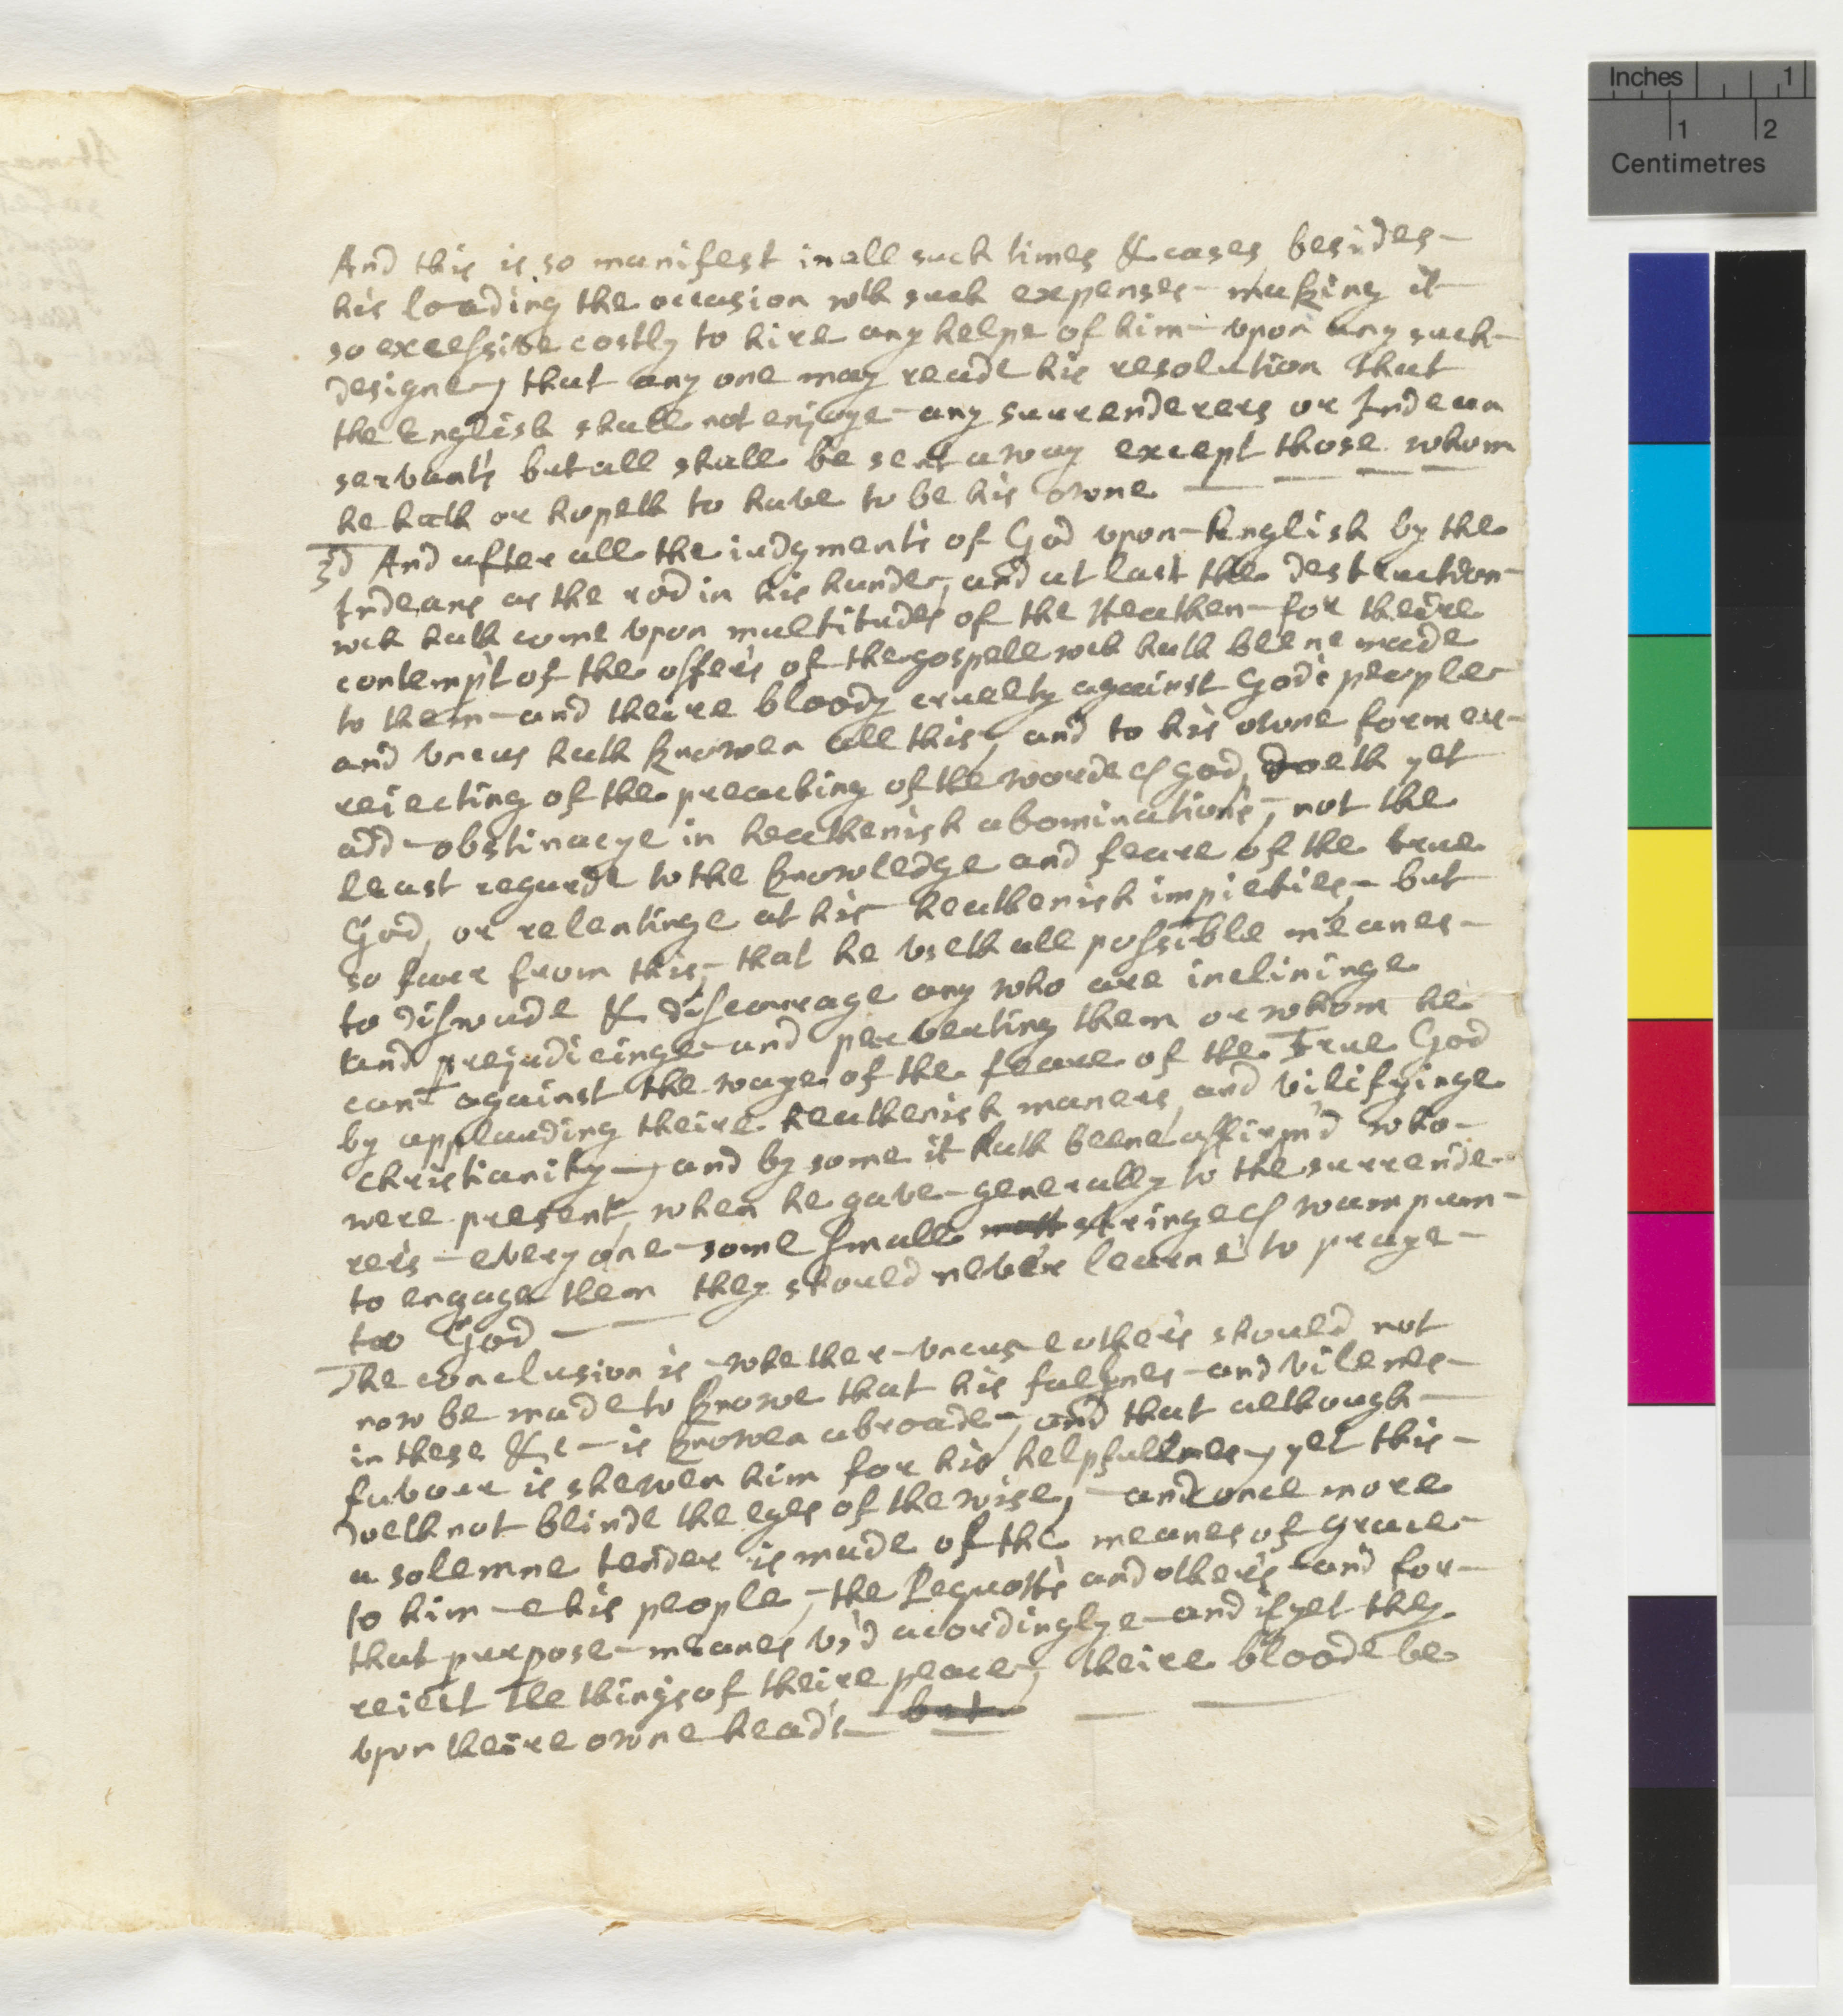 And this is so manifest in all such times & cases, besides-
his loading the occasion wth such expenses - making it
so excessive costly to hire any helpe of him - vpon any such-
designe, that any one may reade his resolution that
the English shall not enjoye - any surrenderers or Indean
servants but all shall be sent away except those whom
he hath or hopeth to have to be his owne — — — —
3d And after all the iudgments of God vpon - English by the
Indeans as the rod in his hande, and at last the destruction-
wch hath come vpon multitudes of the Heathen - for theire
contempt of the offers of the gospell wch hath beene made
to them - and theire bloody cruelty against Gods people
and vncus hath knowen all this, and to his owne former-
reiecting of the preaching of the worde of God, doeth yet
add - obstinacye in heathenish abominations, - not the
least regarde to the knowledge and feare of the true
God, or relentinge at his heathenish impieties, - but
so farr from this, - that he vseth all possible meanes -
to diswade & discourrage any who are inclininge
and prejudicinge - and perverting them or whom he
can against the waye of the feare of the True God
by applauding theire heathenish maners, and vilifyinge
christianity -, and by some it hath beene affirm'd who -
were present, when he gave - generally to the surrende-
rers - every one - some small stringe of wampum -
to engage them they should never learne to praye -
to God — —
The conclusion is - whether - vncus - e others should not
now be made to knowe that his falsnes - and vilenes -
in these &c - is knowen abroade -, and that although -
favour is shewen him for his helpfullnes -, yet this -
doeth not blinde the eyes of the wise, - and once more
a solemne tender is made of the meanes of grace -
to him - e his people, - the Pequotts and others - and for -
that purpose - meanes vs'd acordinglye - and if yet they
reiect the things of theire peace, theire bloode be
vpon theire owne heads — but — —